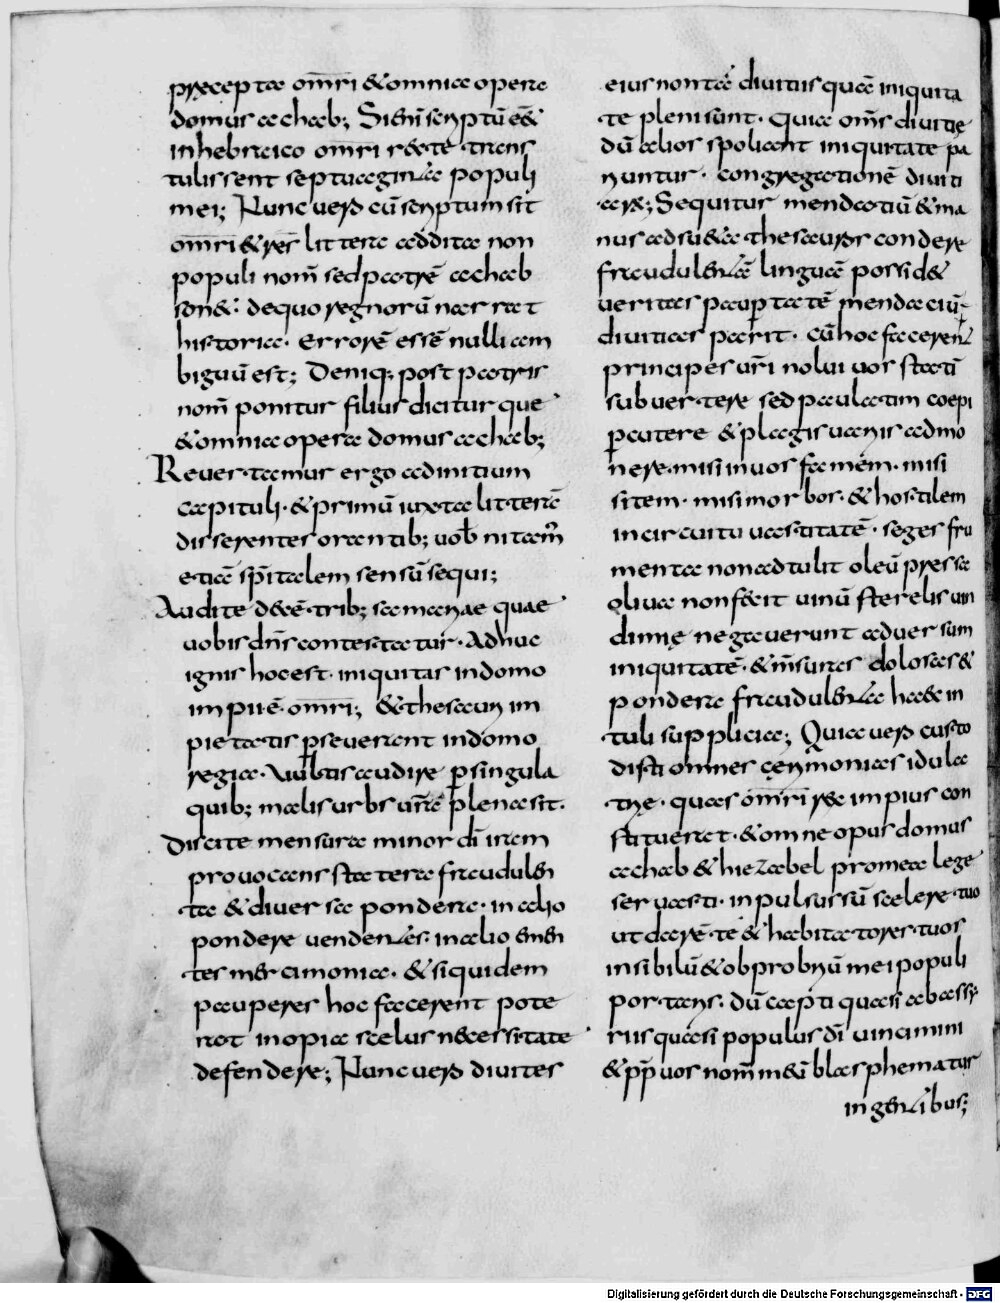 præcepta omri & omnia opera
domus achab; Si enī scriptū eēt
in hebraico omri recte trans
tulissent septuaginta populi
mei; Nunc vero cū scriptum sit
omri & res littera addita non
populi nom̄ sed patrē achab
son&· de quo regnorū narrat
historia· errorē essē nulli am
biguū est; Deniq; post patris
nom̄ ponitur filius dicitur que
& omnia opera domus achab;
Revertamur ergo ad initium
capituli· & primū iuxta litterā
disserentes orantib; vob nitam̄
etiā spītalem sensū sequi;
Audite d&eē trib; samariae quae
vobis dn̄s contestatur· Adhuc
ignis hoc est iniquitas in domo
impiiē· omri; & thesauri im
pietatis pseverant in domo
regia· Vultis audire p singula
quib; malis urbs urā plena sit·
Discite mensura minor dī iram
provocans statera fraudulen
ta & diversa pondera· in alio
pondere vendentes· in alio emen
tes mercimonia· & siquidem
pauperes hoc facerent pote
rat inopia scelus necessitate
defendere; Nunc vero divites
eius non tā divitiis quā iniquita
te pleni sunt· quia om̄s divitię
dū alios spoliant iniquitate pa
runtur· congregationē diviti
aræ; Sequitur mendatiū & ma
nus adsu&a thesauros condere
fraudulentā linguā possid&
veritas paupertatē mendaciū
divitias parit· cū hoc facerent
principes urī nolui vos statī
subvertere sed paulatim coepi
pcutere & plagis variis admo
nere· misi in vos famem· misi
sitem· misi morbos· & hostilem
in circuitu vastitatē· seges fru
menta non adtulit oleū pressa
oliva non fecit vinū sterelis vin
dimię negaverunt adversum
iniquitatē· & m̄suras dolosas &
pondera fraudulenta haec in
tuli supplicia; Quia vero custo
disti omnes cerymonias idula
træ· quas omri rex impius con
stituerat· & omne opus domus
achab & hiezabel pro mea lege
servasti· inpulsus sū scelere tuo
ut darē te & habitatores tuos
in sibilū & obprobriū mei populi
portans· dū capti quasi ab assy
riis quasi populus dī vincimini
& pp vos nom̄ meū blasphematur
in gentibus;
Digitalisierung gefördert durch die Deutsche Forschungsgemeinschaft - DFG